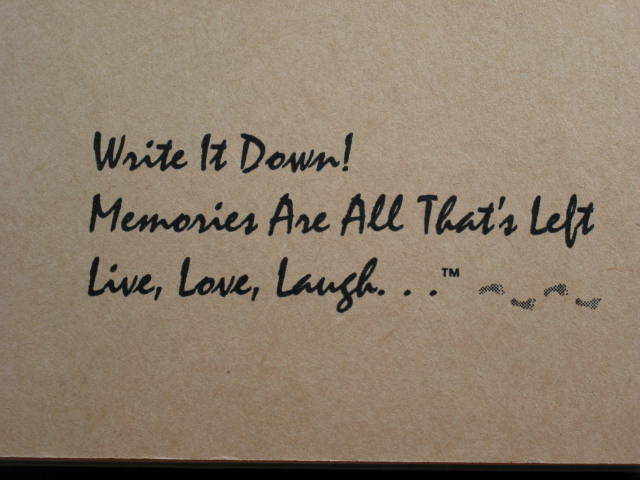 Write It Down!
Memories Are All That's Left
Live, Love, Laugh. . .™